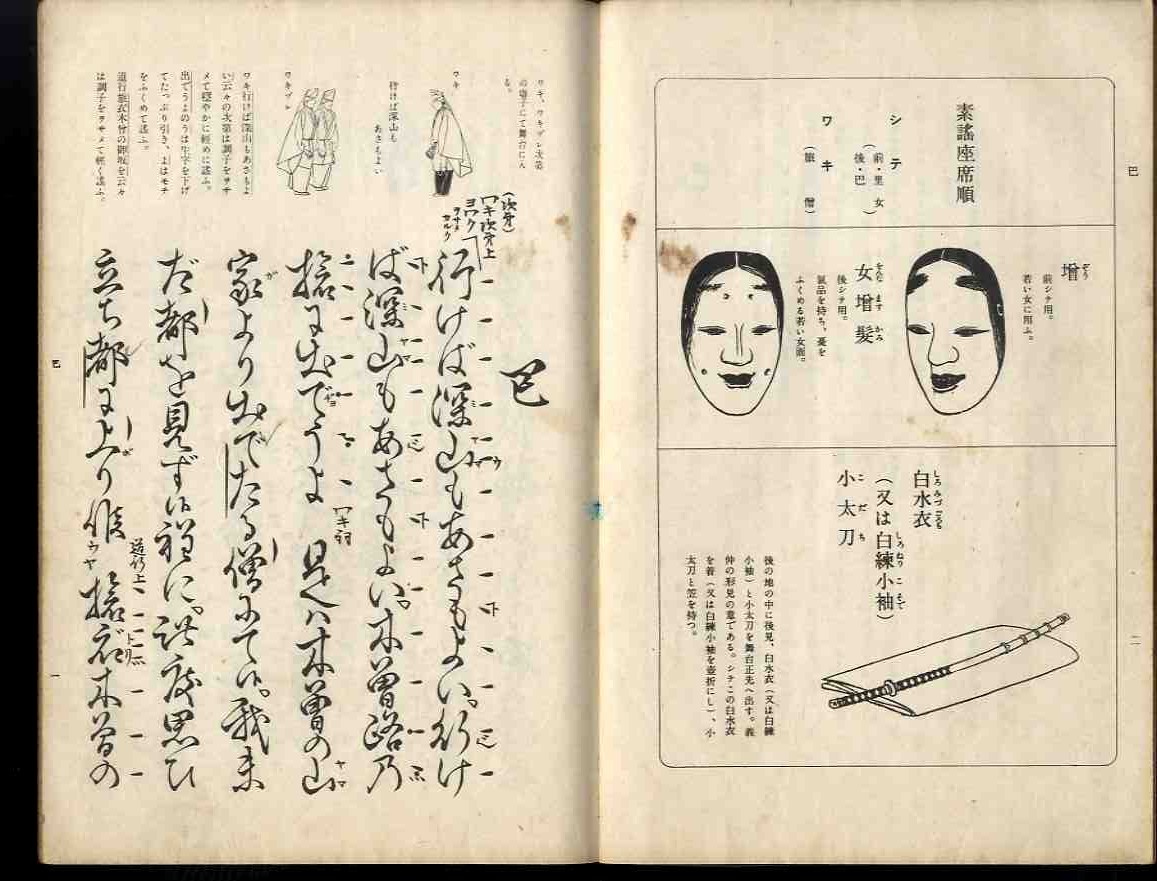 巴
素謡座席順
シテ
（前・里女
後・巴）
ワキ
（旅僧）
増
ぞう
前シテ用。
若い女に用ふ。
女増髪
をんなますかみ
後シテ用。
気品を持ち、憂を
ふくめる若い女面。
白水衣
しろみづごろも
（又は白練小袖）
しろねりこそで
小太刀
こだち
後の地の中に後見、白水衣（又は白練
小袖）と小太刀を舞台正先へ出す。義
仲の形見の意である。シテこの白水衣
を着（又は白練小袖を壺折にし）、小
太刀と笠を持つ。
二
ワキ、ワキヅレ次第
の囃子にて舞台に入
る。
ワキ
行けば深山も
あさもよい
ワキヅレ
ワキ行けば深山もあさもよ
い云々の次第は調子をヲサ
メて穏やかに締めに謡ふ。
出でうよのうは生字を下げ
てたっぷり引き、よはモチ
をふくめて謡ふ。
道行旅衣木曽の御坂を云々
は調子をヲサメて軽く謡ふ。
巴
（次第）
ワキ次第上
ヨワク
ヲサメ
カルク
行けば深山もあさもよい。行け
ば深山もあさもよい。木曽路乃
旅に出でうよ
ワキ詞
是ハ木曽の山
家より出でたる僧にて候。我未
だ都を見ず候程に。此度思ひ
立ち都に上り候
道行上
旅衣木曽の
巴
一